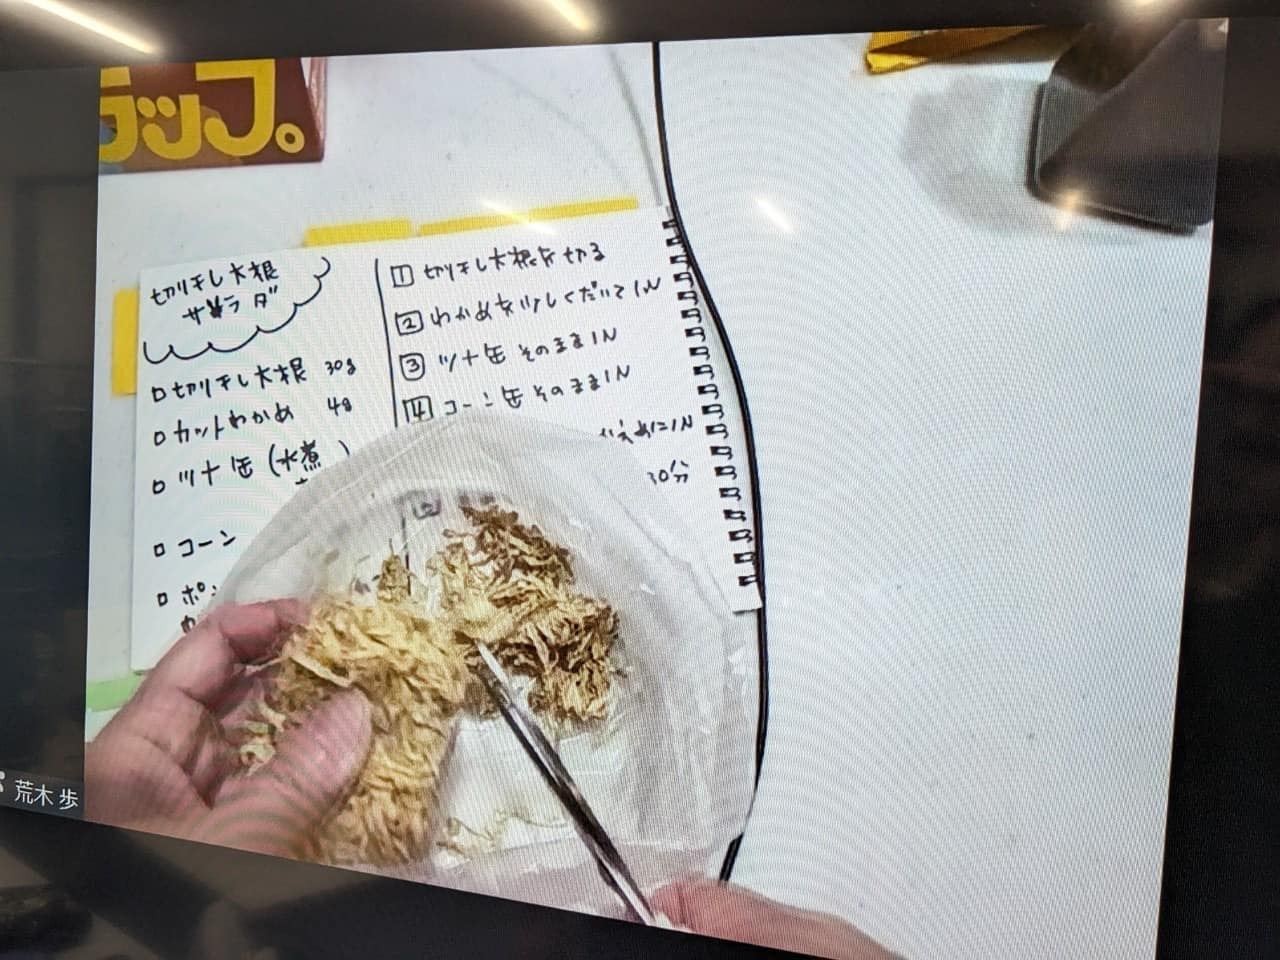 ラップ。
切り干し大根
サラダ
切り干し大根 30g
カットわかめ 4g
ツナ缶(水煮)
コーン
ポン
1 切り干し大根を切る
2 わかめを少しくだいてIN
3 ツナ缶そのままIN
4 コーン缶そのままIN
めにIN
30分
荒木 歩